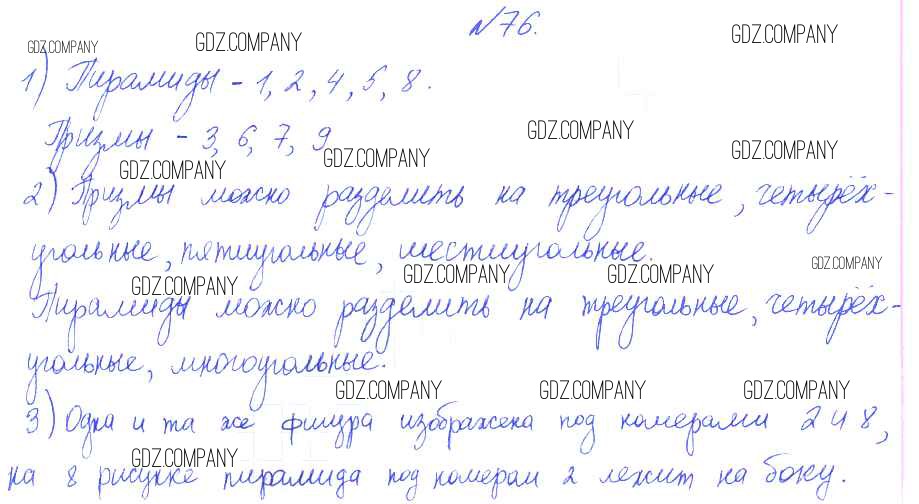 №76.
GDZ.COMPANY GDZ.COMPANY GDZ.COMPANY
1) Пирамиды - 1, 2, 4, 5, 8.
Призмы - 3, 6, 7, 9
GDZ.COMPANY GDZ.COMPANY GDZ.COMPANY GDZ.COMPANY
2) Призмы можно разделить на треугольные, четырёх-
угольные, пятиугольные, шестиугольные.
GDZ.COMPANY GDZ.COMPANY GDZ.COMPANY GDZ.COMPANY
Пирамиды можно разделить на треугольные, четырёх-
угольные, многоугольные.
GDZ.COMPANY GDZ.COMPANY GDZ.COMPANY
3) Одна и та же фигура изображена под номерами 2 и 8,
GDZ.COMPANY
на 8 рисунке пирамида под номером 2 лежит на боку.